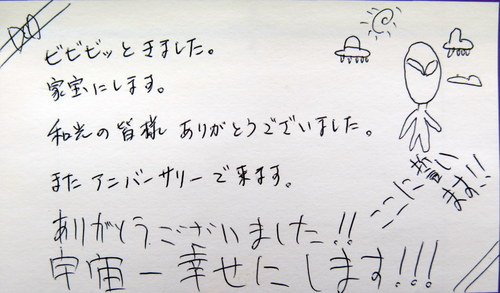 ビビビッときました。
家宝にします。
和光の皆様 ありがとうございました。
また アニバーサリーで来ます。
誓い
ます!!
ありがとうございました!!
宇宙一幸せにします!!!